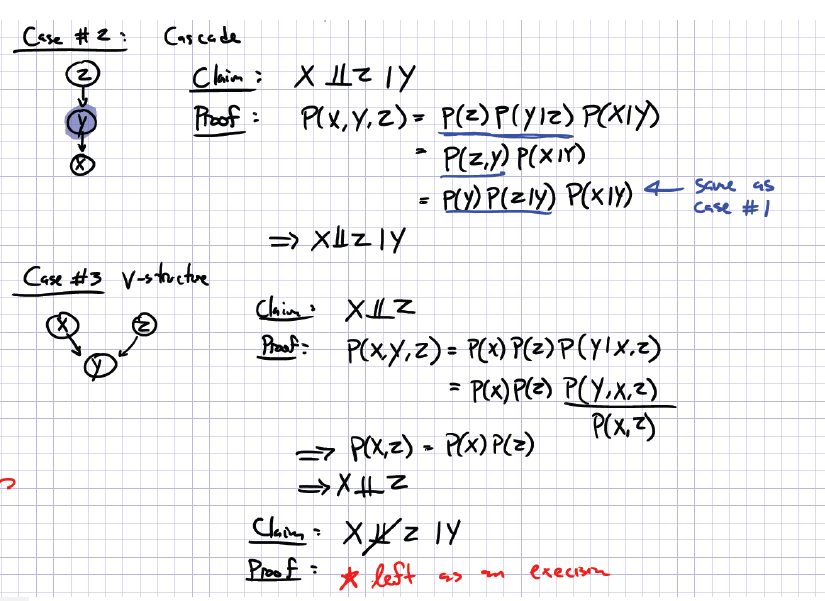 Case #2: Cascade
Z
Claim: X ⫫ Z | Y
Y
Proof: P(X, Y, Z) = P(Z) P(Y|Z) P(X|Y)
X
= P(Z, Y) P(X|Y)
= P(Y) P(Z|Y) P(X|Y) ← same as
case #1
⟹ X ⫫ Z | Y
Case #3 V-structure
Claim: X ⫫ Z
X Z
Proof: P(X, Y, Z) = P(X) P(Z) P(Y|X, Z)
Y
= P(X) P(Z) P(Y, X, Z)
P(X, Z)
⟹ P(X, Z) = P(X) P(Z)
⟹ X ⫫ Z
Claim: X ⫫̸ Z | Y
Proof: ★ left as an